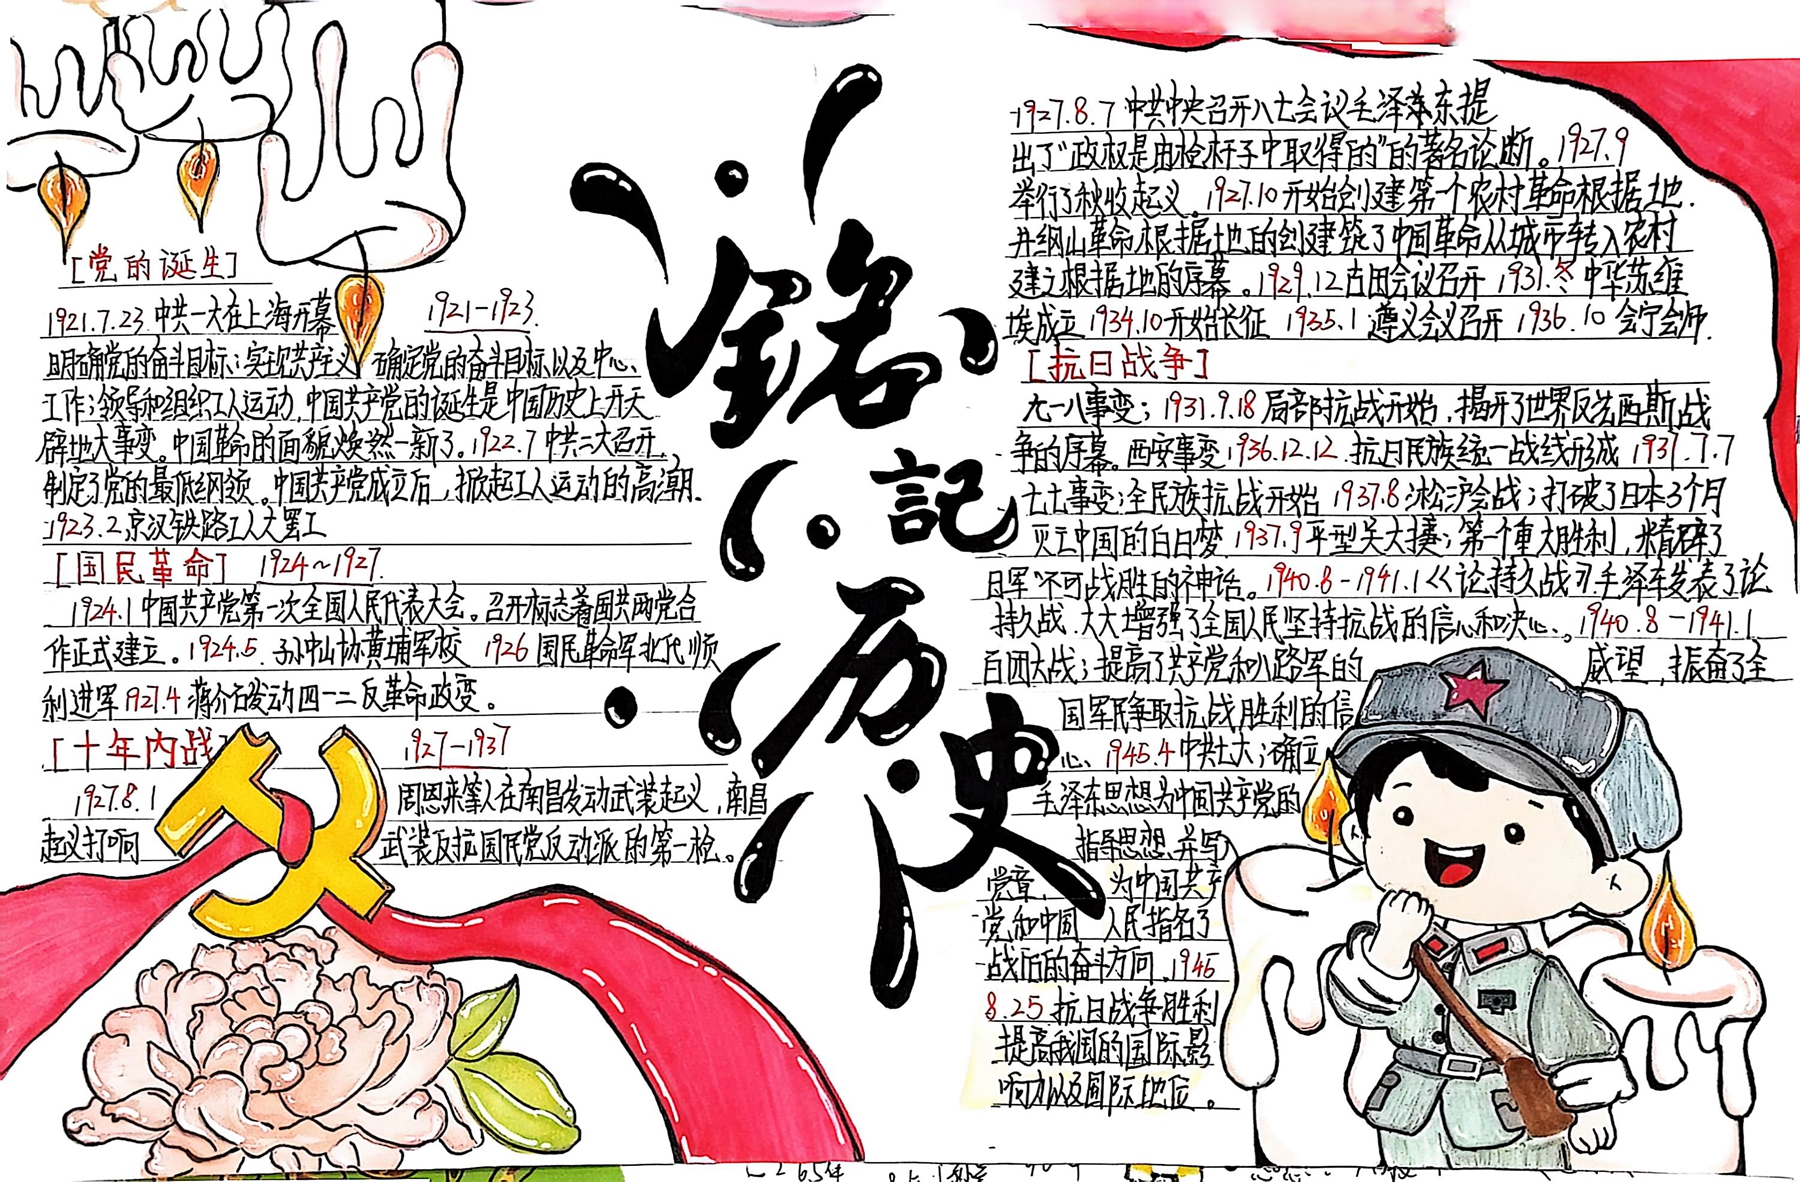 铭記历史
[党的诞生]
1921.7.23.中共一大在上海开幕 1921-1923.
明确党的奋斗目标；实现共产主义 确定党的奋斗目标以及中心、
工作；领导和组织工人运动，中国共产党的诞生是中国历史上开天
辟地大事变。中国革命的面貌焕然一新了。1922.7中共二大召开，
制定了党的最低纲领。中国共产党成立后，掀起工人运动的高潮.
1923.2.京汉铁路工人大罢工
[国民革命] 1924~1927.
1924.1中国共产党第一次全国人民代表大会。召开标志着国共两党合
作正式建立。1924.5.孙中山协黄埔军校 1926 国民革命军北伐顺
利进军1927.4 蒋介石发动四一二反革命政变。
[十年内战] 1927-1937
1927.8.1 周恩来等人在南昌发动武装起义，南昌
起义打响 武装反抗国民党反动派的第一枪。
1927.8.7 中共中央召开八七会议毛泽东提
出了“政权是由枪杆子中取得的”的著名论断。1927.9
举行了秋收起义。1927.10开始创建第一个农村革命根据地.
井纲山革命根据地的创建筑了中国革命从城市转入农村
建立根据地的序幕。1929.12古田会议召开 1931.冬 中华苏维
埃成立 1934.10开始长征 1935.1 遵义会议召开 1936.10 会宁会师.
[抗日战争]
九一八事变；1931.9.18局部抗战开始，揭开了世界反法西斯战
争的序幕。西安事变1936.12.12.抗日民族统一战线形成 1937.7.7
七七事变；全民族抗战开始 1937.8 淞沪会战；打破了日本3个月
灭亡中国的白日梦 1937.9平型关大捷；第一个重大胜利，粉碎了
日军“不可战胜的神话。1940.8-1941.1《论持久战》毛泽东发表了论
持久战.大大增强了全国人民坚持抗战的信心和决心。1940.8-1941.1
百团大战；提高了共产党和八路军的 威望，振奋了全
国军民争取抗战胜利的信
心、1945.4 中共七大；确立
毛泽东思想为中国共产党的
指导思想.并写
党章. 为中国共产
党和中国 人民指名了
战后的奋斗方向.1945
8.25 抗日战争胜利
提高我国的国际影
响力以及国际地位。